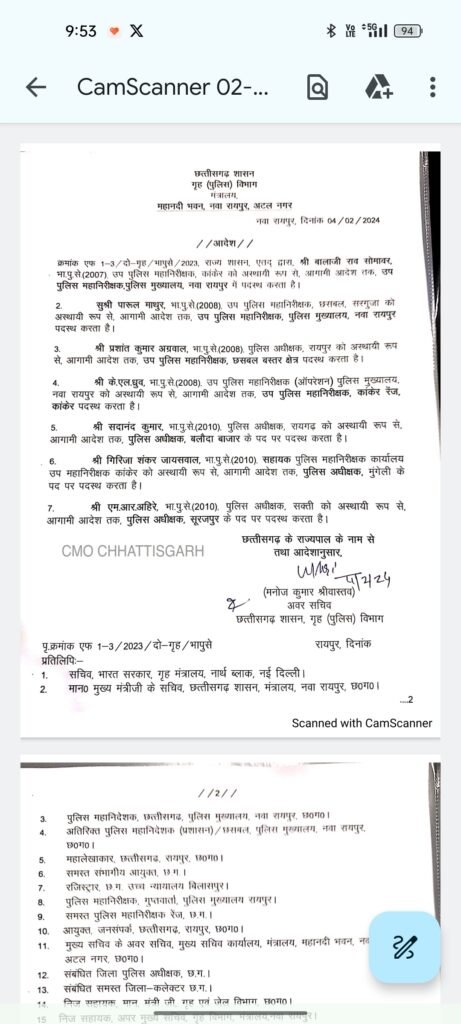 9:53 X Vo LTE 5G 94
CamScanner 02-...
छत्तीसगढ़ शासन
गृह (पुलिस) विभाग
मंत्रालय,
महानदी भवन, नवा रायपुर, अटल नगर
नवा रायपुर, दिनांक 04/02/2024
//आदेश//
क्रमांक एफ 1-3/दो-गृह/भापुसे/2023, राज्य शासन, एतद् द्वारा, श्री बालाजी राव सोमावर,
भा.पु.से.(2007), उप पुलिस महानिरीक्षक, कांकेर को अस्थायी रूप से, आगामी आदेश तक, उप
पुलिस महानिरीक्षक,पुलिस मुख्यालय, नवा रायपुर में पदस्थ करता है।
2. सुश्री पारूल माथुर, भा.पु.से.(2008), उप पुलिस महानिरीक्षक, छसबल, सरगुजा को
अस्थायी रूप से, आगामी आदेश तक, उप पुलिस महानिरीक्षक, पुलिस मुख्यालय, नवा रायपुर
पदस्थ करता है।
3. श्री प्रशांत कुमार अग्रवाल, भा.पु.से.(2008), पुलिस अधीक्षक, रायपुर को अस्थायी रूप
से, आगामी आदेश तक, उप पुलिस महानिरीक्षक, छसबल बस्तर क्षेत्र पदस्थ करता है।
4. श्री के.एल.ध्रुव, भा.पु.से.(2008), उप पुलिस महानिरीक्षक (ऑपरेशन) पुलिस मुख्यालय,
नवा रायपुर को अस्थायी रूप से, आगामी आदेश तक, उप पुलिस महानिरीक्षक, कांकेर रेंज,
कांकेर पदस्थ करता है।
5. श्री सदानंद कुमार, भा.पु.से.(2010), पुलिस अधीक्षक, रायगढ़ को अस्थायी रूप से,
आगामी आदेश तक, पुलिस अधीक्षक, बलौदा बाजार के पद पर पदस्थ करता है।
6. श्री गिरिजा शंकर जायसवाल, भा.पु.से.(2010), सहायक पुलिस महानिरीक्षक कार्यालय
उप महानिरीक्षक कांकेर को अस्थायी रूप से, आगामी आदेश तक, पुलिस अधीक्षक, मुंगेली के
पद पर पदस्थ करता है।
7. श्री एम.आर.अहिरे, भा.पु.से.(2010), पुलिस अधीक्षक, सक्ती को अस्थायी रूप से,
आगामी आदेश तक, पुलिस अधीक्षक, सूरजपुर के पद पर पदस्थ करता है।
छत्तीसगढ़ के राज्यपाल के नाम से
तथा आदेशानुसार,
CMO CHHATTISGARH
(मनोज कुमार श्रीवास्तव)
अवर सचिव
छत्तीसगढ़ शासन, गृह (पुलिस) विभाग
पृ.क्रमांक एफ 1-3/2023/दो-गृह/भापुसे रायपुर, दिनांक
प्रतिलिपि:-
1. सचिव, भारत सरकार, गृह मंत्रालय, नार्थ ब्लाक, नई दिल्ली।
2. मान0 मुख्य मंत्रीजी के सचिव, छत्तीसगढ़ शासन, मंत्रालय, नवा रायपुर, छ0ग0।
....2
Scanned with CamScanner
//2//
3. पुलिस महानिदेशक, छत्तीसगढ़, पुलिस मुख्यालय, नवा रायपुर, छ0ग0।
4. अतिरिक्त पुलिस महानिदेशक (प्रशासन)/छसबल, पुलिस मुख्यालय, नवा रायपुर,
छ0ग0।
5. महालेखाकार, छत्तीसगढ़, रायपुर, छ0ग0।
6. समस्त संभागीय आयुक्त, छ.ग.।
7. रजिस्ट्रार, छ.ग. उच्च न्यायालय बिलासपुर।
8. पुलिस महानिरीक्षक, गुप्तवार्ता, पुलिस मुख्यालय रायपुर।
9. समस्त पुलिस महानिरीक्षक रेंज, छ.ग.।
10. आयुक्त, जनसंपर्क, छत्तीसगढ़, रायपुर, छ0ग0।
11. मुख्य सचिव के अवर सचिव, मुख्य सचिव कार्यालय, मंत्रालय, महानदी भवन,
अटल नगर, छ0ग0।
12. संबंधित जिला पुलिस अधीक्षक, छ.ग.।
13. संबंधित समस्त जिला-कलेक्टर छ.ग.।
14. निज सहायक, मान. मंत्री जी, गृह एवं जेल विभाग, छ0ग0।
15 निज सहायक, अपर मुख्य सचिव, गृह विभाग, मंत्रालय,नवा रायपुर।